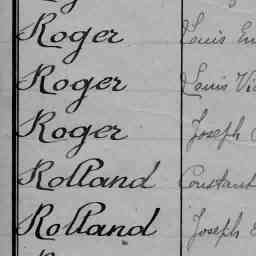 Roger Louis
Roger Louis
Roger Joseph
Rolland Constant
Rolland Joseph